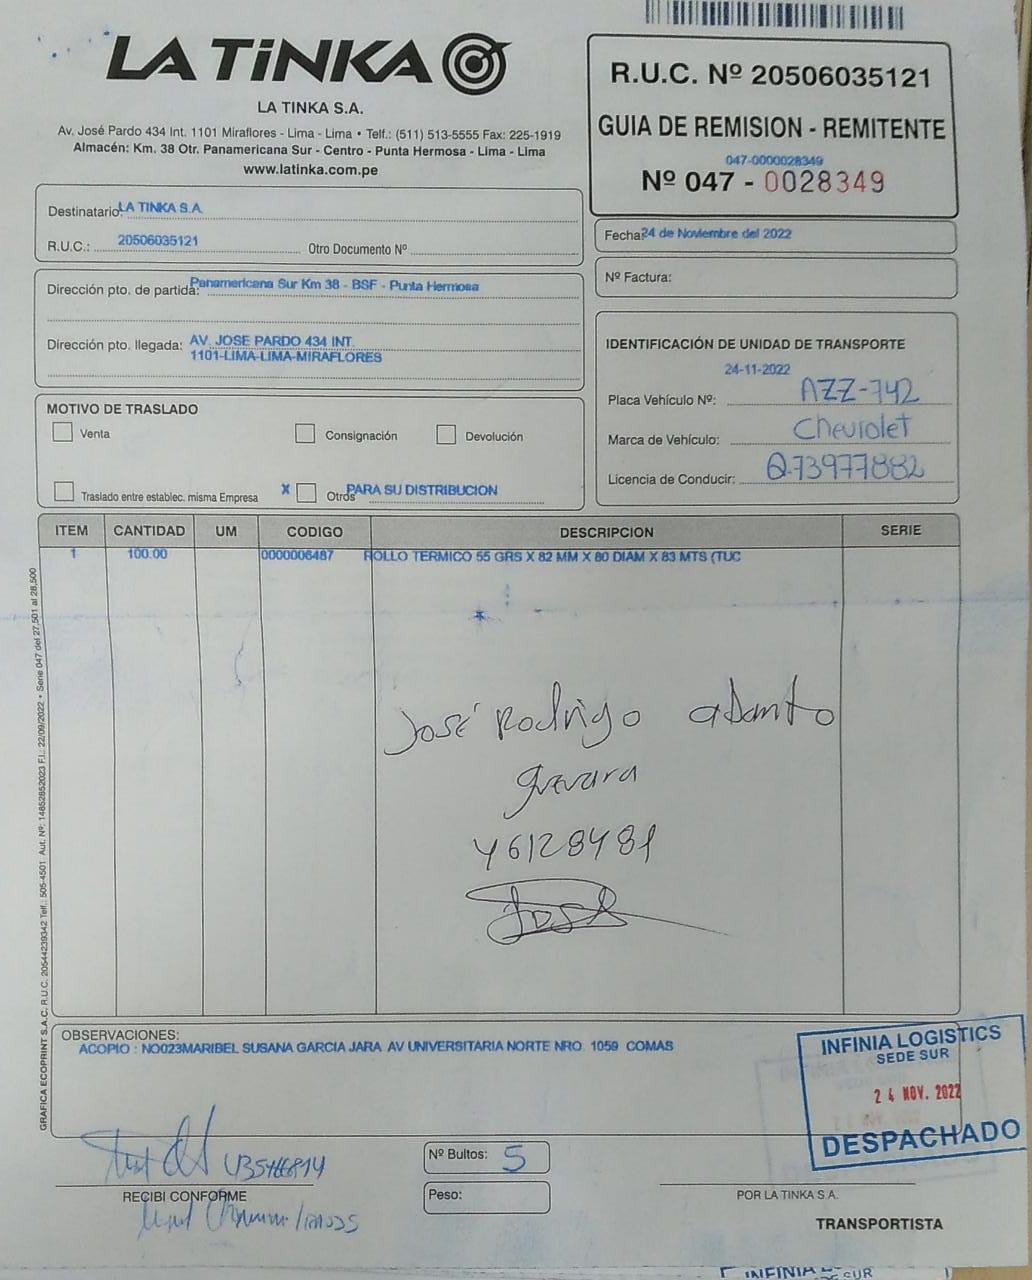 LA TiNKA
LA TINKA S.A.
Av. José Pardo 434 Int. 1101 Miraflores - Lima - Lima • Telf.: (511) 513-5555 Fax: 225-1919
Almacén: Km. 38 Otr. Panamericana Sur - Centro - Punta Hermosa - Lima - Lima
www.latinka.com.pe
R.U.C. Nº 20506035121
GUIA DE REMISION - REMITENTE
047-0000028349
Nº 047 - 0028349
Destinatario: LA TINKA S.A.
R.U.C.: 20506035121 Otro Documento Nº
Fecha: 24 de Noviembre del 2022
Nº Factura:
Dirección pto. de partida: Panamericana Sur Km 38 - BSF - Punta Hermosa
Dirección pto. llegada: AV. JOSE PARDO 434 INT.
1101-LIMA-LIMA-MIRAFLORES
IDENTIFICACIÓN DE UNIDAD DE TRANSPORTE
24-11-2022
Placa Vehículo Nº: AZZ-742
Marca de Vehículo: Chevrolet
Licencia de Conducir: Q73977882
MOTIVO DE TRASLADO
Venta Consignación Devolución
Traslado entre establec. misma Empresa X Otros PARA SU DISTRIBUCION
ITEM CANTIDAD UM CODIGO DESCRIPCION SERIE
1 100.00 0000006487 ROLLO TERMICO 55 GRS X 82 MM X 80 DIAM X 83 MTS (TUC
José Rodrigo
46128481
GRAFICA ECOPRINT S.A.C. R.U.C. 20544239342 Telf.: 505-4501 Aut. Nº: 14852852023 F.I.: 22/09/2022 • Serie 047 del 27,501 al 28,500
OBSERVACIONES:
ACOPIO : NO023MARIBEL SUSANA GARCIA JARA AV UNIVERSITARIA NORTE NRO. 1059 COMAS
INFINIA LOGISTICS
SEDE SUR
24 NOV. 2022
DESPACHADO
Nº Bultos: 5
Peso:
RECIBI CONFORME
POR LA TINKA S.A.
TRANSPORTISTA